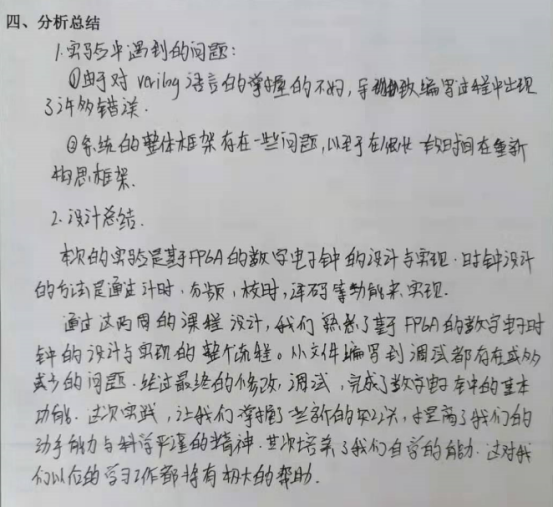 四、分析总结
1.实验中遇到的问题:
①由于对 verilog 语言的掌握的不好,导致编写过程中出现
了许多错误.
②系统的整体框架存在一些问题,以至于在 时间在重新
构思框架.
2.设计总结.
本次的实验是基于FPGA的数字电子钟的设计与实现.时钟设计
的方法是通过计时,分频,校时,译码等功能来实现.
通过这两周的课程设计,我们熟悉了基于FPGA的数字电子时
钟的设计与实现的整个流程。从文件编写到调试都存在或多
或少的问题.经过最终的修改,调试,完成了数字电子钟的基本
功能.这次实践,让我们掌握了些新的知识,也提高了我们的
动手能力与科学严谨的精神.其次培养了我们自学的能力.这对我
们以后的学习工作都将有极大的帮助.